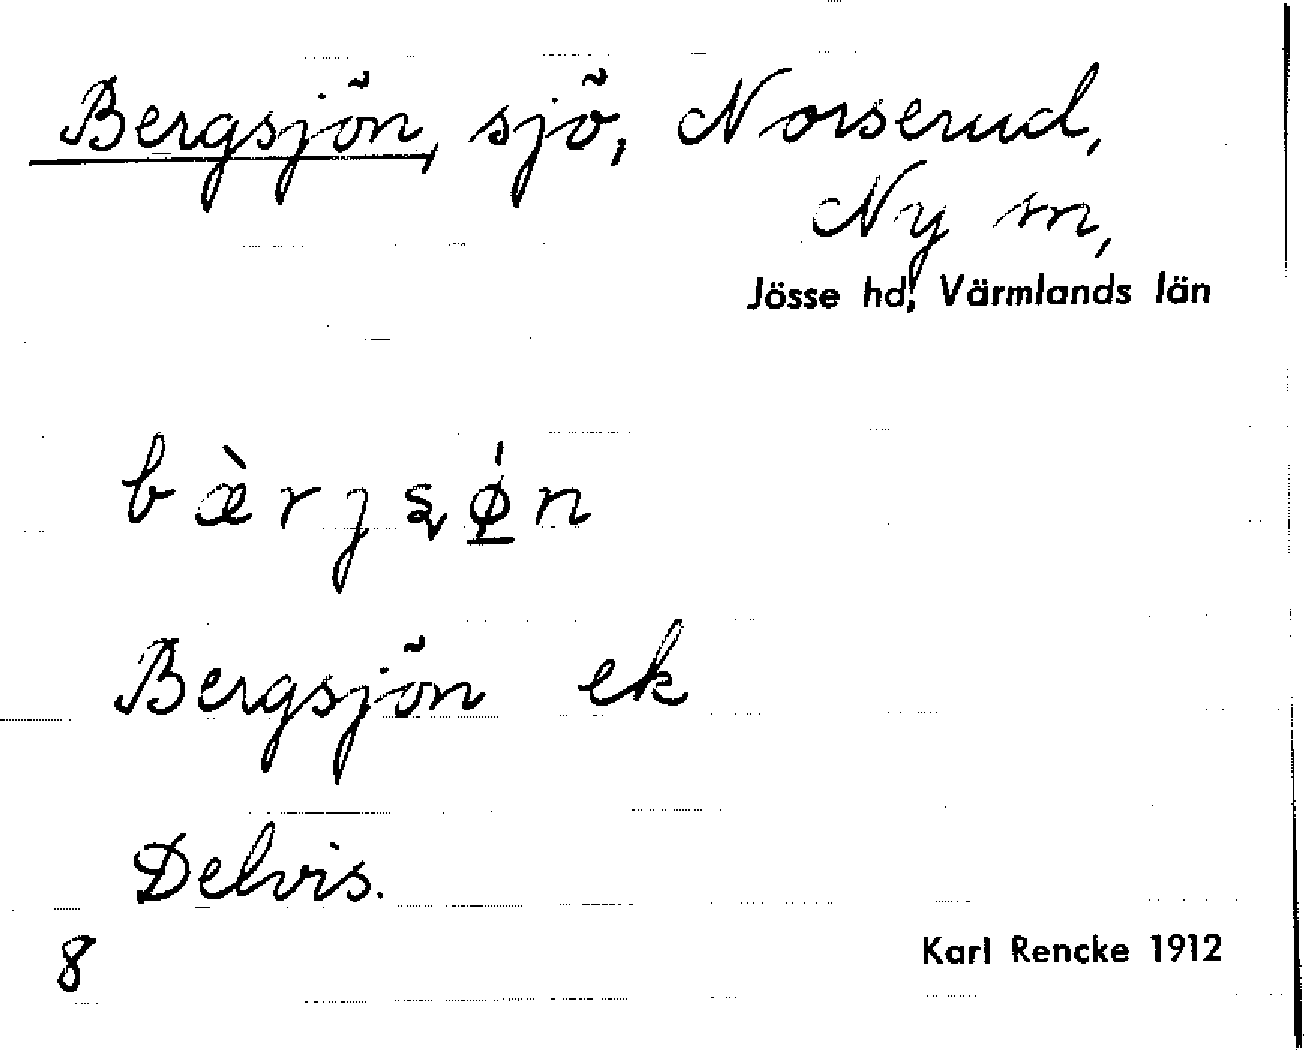 Bergsjön, sjö, Norserud,
Ny sn,
Jösse hd, Värmlands län
bæ̀rjʂǿ̲n
Bergsjön ek
Delvis.
8
Karl Rencke 1912